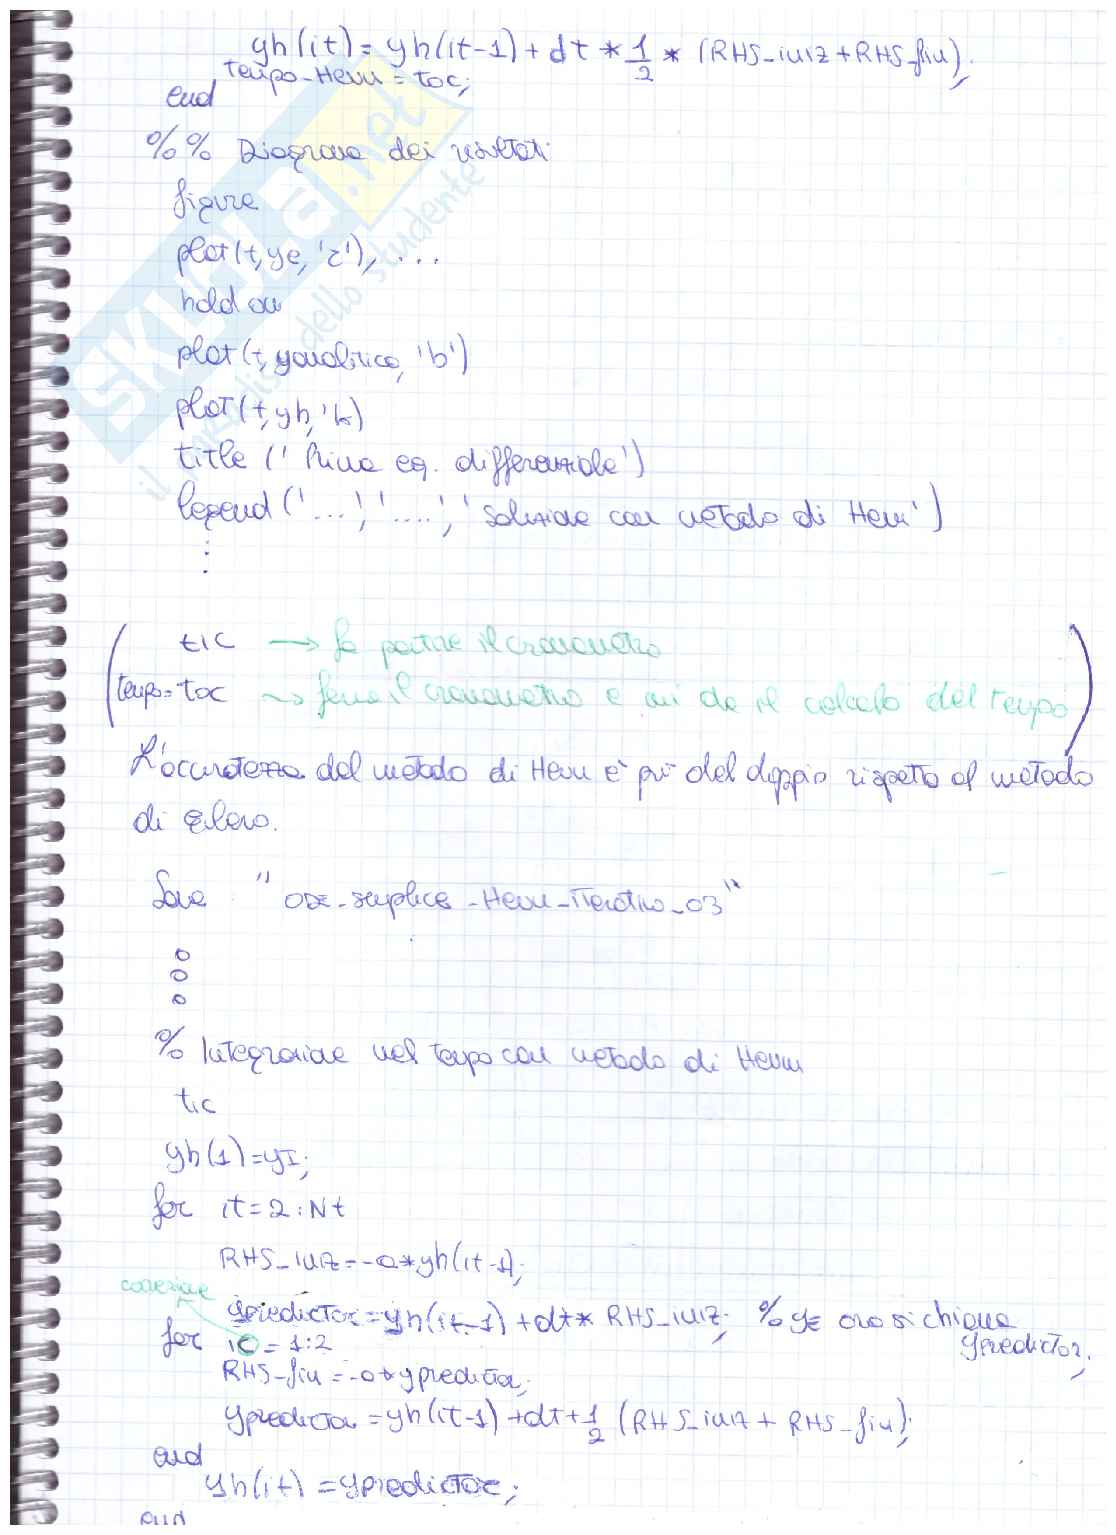 yh(it) = yh(it-1) + dt * 1/2 * (RHS_iniz + RHS_fin);
tempo-Heun = toc;
end
%% Diagramma dei risultati
figure
plot(t, ye, 'r'), ...
hold on
plot(t, yanalitica, 'b')
plot(t, yh, 'k)
title (' Prima eq. differenziale')
legend ('...', '....', 'soluzione con metodo di Heun')
⋮
tic → fa partire il cronometro
tempo = toc → ferma il cronometro e mi da il calcolo del tempo
L'accuratezza del metodo di Heun è più del doppio rispetto al metodo
di Eulero.
Save "ODE_semplice_Heun_iterativo_03"
o
o
o
% Integrazione nel tempo con metodo di Heun
tic
yh(1) = yI;
for it = 2:Nt
RHS_iniz = -a*yh(it-1);
correzione
ypredictor = yh(it-1) + dt* RHS_iniz; % yE ora si chiama
ypredictor;
for ic = 1:2
RHS_fin = -a*ypredictor;
ypredictor = yh(it-1) + dt + 1/2 (RHS_iniz + RHS_fin);
end
yh(it) = ypredictor;
end
SKUOLA.net
il paradiso dello studente